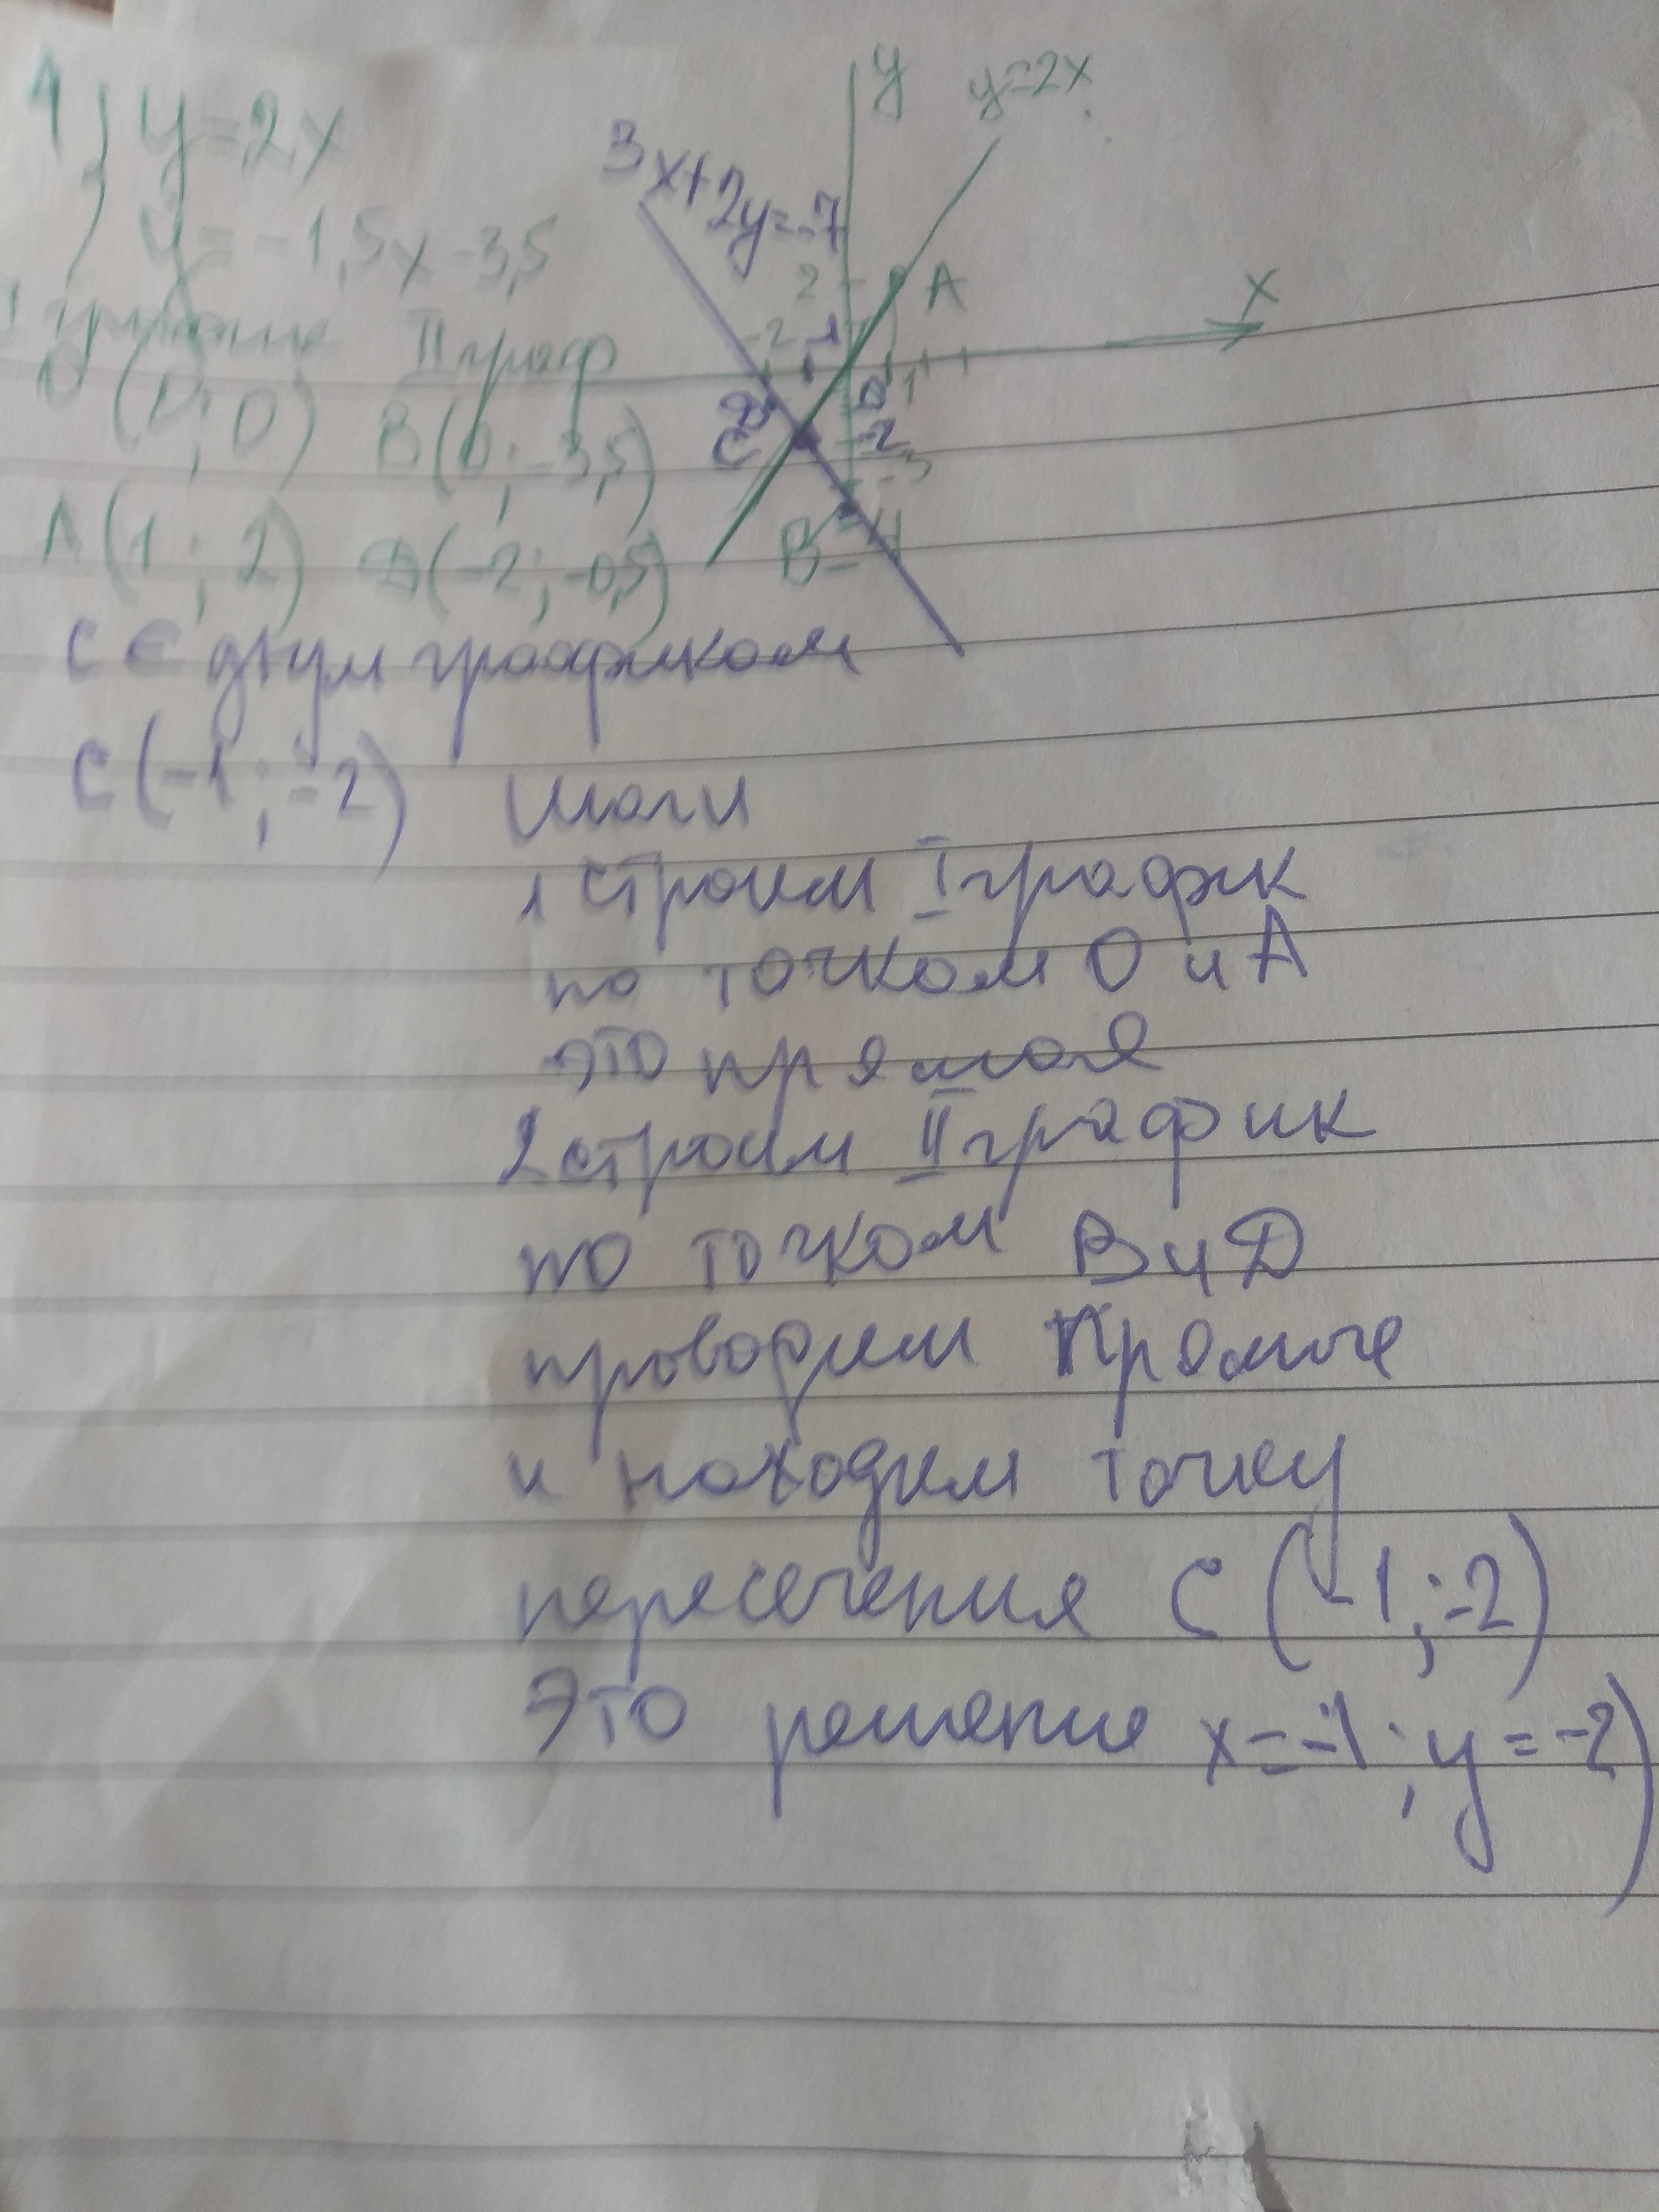 1) y=2x
y=-1,5x-3,5
I график II граф
O (0; 0) B(0; -3,5)
A(1; 2) D(-2; -0,5)
y
y=2x
3x+2y=-7
2 A
x
-2 -1
D 0 1
C -2
-3
B -4
C ∈ двум графикам
C(-1; -2)
Шаги
1 строим I график
по точкам O и A
это прямая
2 строим II график
по точкам B и D
проводим прямые
и находим точку
пересечения C (-1; -2)
Это решение x=-1; y=-2)